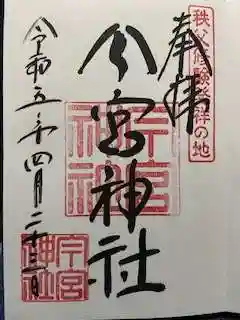 奉拝
秩父修験発祥の地
今宮神社
今宮神社
令和五年四月二十三日
今宮神社